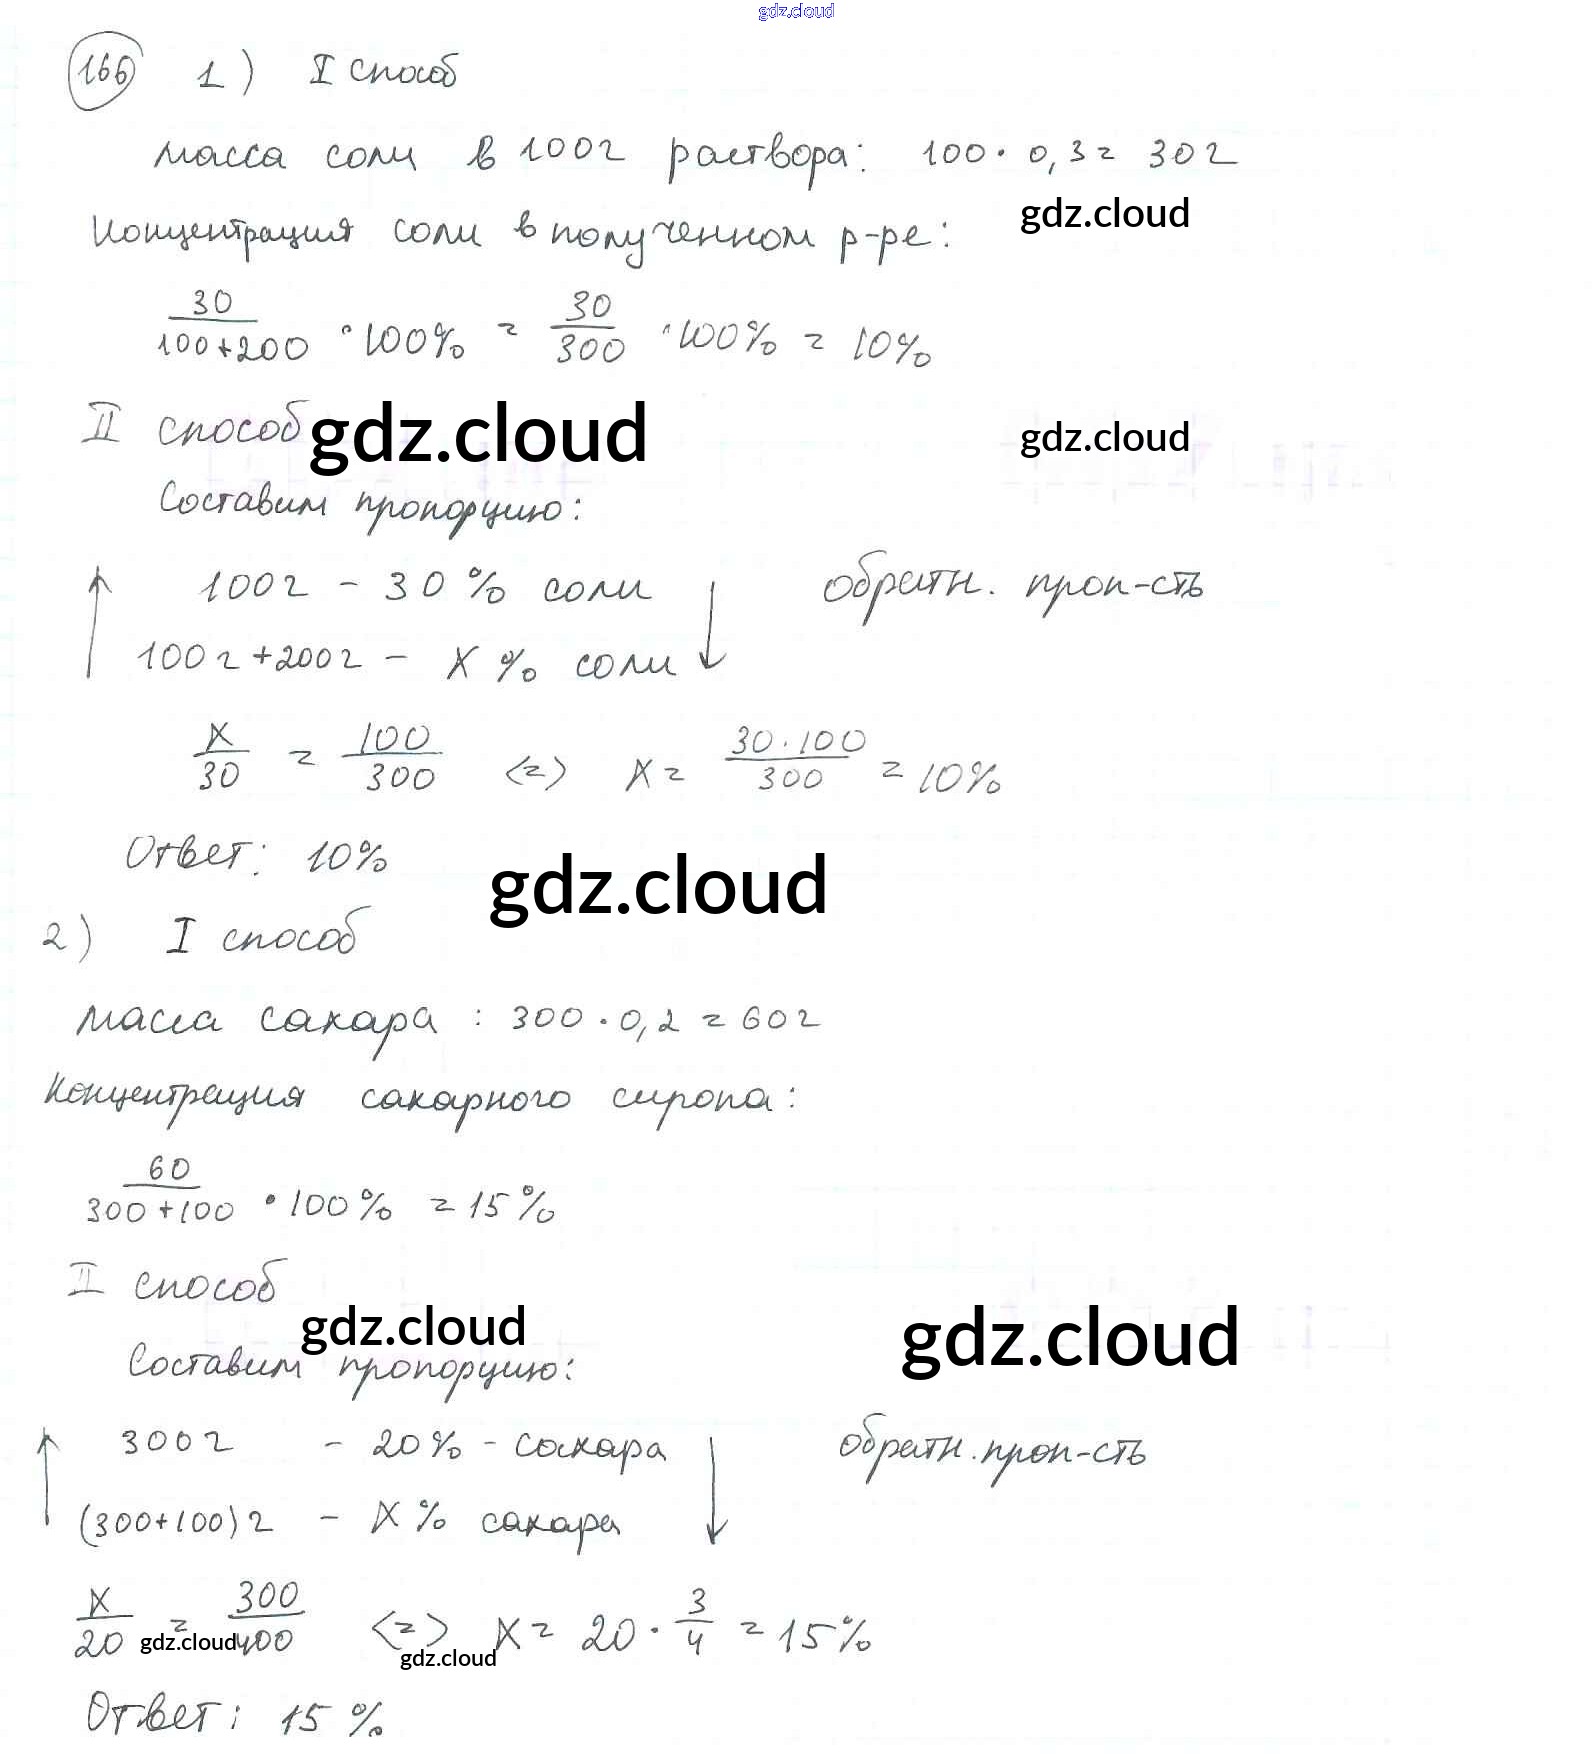 gdz.cloud
166 1) I способ
масса соли в 100г раствора: 100 · 0,3 = 30г
gdz.cloud
Концентрация соли в полученном р-ре:
30/(100+200) · 100% = 30/300 · 100% = 10%
II способ gdz.cloud gdz.cloud
Составим пропорцию:
↑ 100г - 30% соли ↓ обратн. проп-сть
100г+200г - x% соли
x/30 = 100/300 <=> x = 30·100/300 = 10%
Ответ: 10%
gdz.cloud
2) I способ
масса сахара : 300 · 0,2 = 60г
Концентрация сахарного сиропа:
60/(300+100) · 100% = 15%
II способ
gdz.cloud gdz.cloud
Составим пропорцию:
↑ 300г - 20% - сахара ↓ обратн. проп-сть
(300+100)г - x% сахара
x/20 = 300/400 <=> x = 20 · 3/4 = 15%
gdz.cloud gdz.cloud
Ответ: 15%